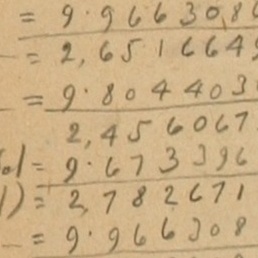 = 9.966308
= 2,651664
= 9.804403
2,456067
= 9.673396
1) = 2,782671
= 9.966308